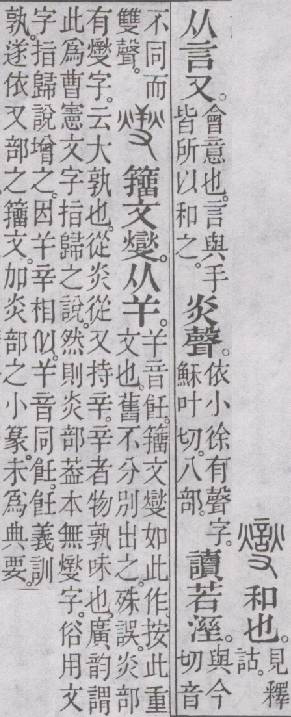 和也。見釋
詁。
从言又。會意也。言與手
皆所以和之。炎聲。依小徐有聲字。
穌叶切。八部。讀若溼。與今
切音
不同而
雙聲。籒文燮。从𢆉。𢆉音飪。籒文燮如此作。按此重
文也。舊不分別出之。殊誤。炎部
有燮字。云大孰也。從炎從又持辛。辛者物孰味也。廣韵謂
此爲曹憲文字指歸之說。然則炎部葢本無燮字。俗用文
字指歸說增之。因𢆉辛相似。𢆉音同飪。飪義訓
孰。遂依又部之籒文。加炎部之小篆。未爲典要。